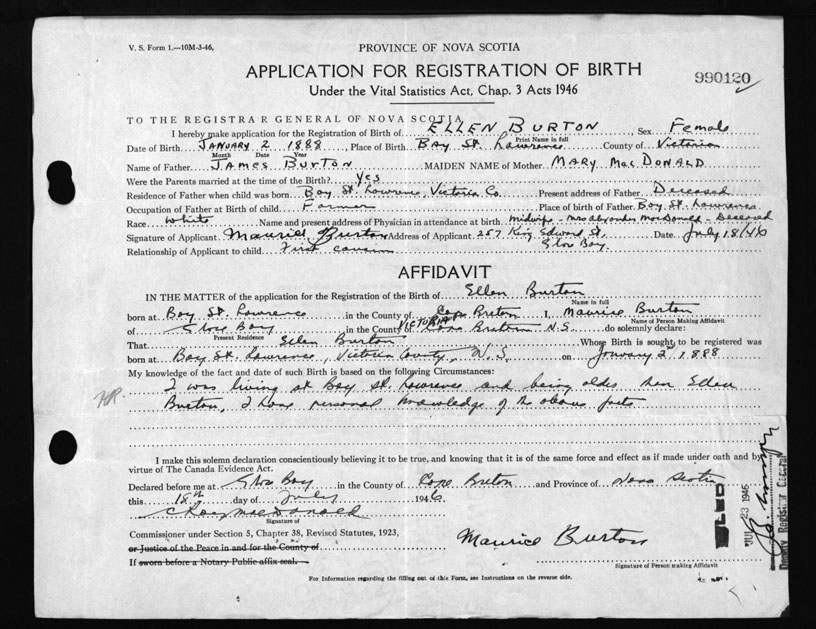 V. S. Form 1.—10M-3-46,
PROVINCE OF NOVA SCOTIA
APPLICATION FOR REGISTRATION OF BIRTH
990120
Under the Vital Statistics Act, Chap. 3 Acts 1946
TO THE REGISTRAR GENERAL OF NOVA SCOTIA
I hereby make application for the Registration of Birth of ELLEN BURTON, Sex Female
Print Name in full
Date of Birth JANUARY 2 1888, Place of Birth Bay St. Lawrence County of Victoria
Month Date Year
Name of Father JAMES BURTON MAIDEN NAME of Mother MARY MacDONALD
Were the Parents married at the time of the Birth? Yes
Residence of Father when child was born Bay St. Lawrence, Victoria Co. Present address of Father Deceased
Occupation of Father at Birth of child Farmer Place of birth of Father Bay St. Lawrence
Race White Name and present address of Physician in attendance at birth Midwife - Mrs Alexander MacDonald - Deceased
Signature of Applicant Maurice Burton Address of Applicant 257 King Edward St. Date July 18/46
Glace Bay.
Relationship of Applicant to child First cousin
AFFIDAVIT
IN THE MATTER of the application for the Registration of Birth of Ellen Burton
Name in full
born at Bay St. Lawrence in the County of Cape Breton I, Maurice Burton
Name of Person Making Affidavit
of Glace Bay in the County VICTORIA Cape Breton N.S. do solemnly declare:
Present Residence
That Ellen Burton Whose Birth is sought to be registered was
born at Bay St. Lawrence, Victoria County, N.S. on January 2nd 1888
My knowledge of the fact and date of such Birth is based on the following Circumstances:
I was living at Bay St. Lawrence and being older than Ellen
Burton, I have personal knowledge of the above facts
I make this solemn declaration conscientiously believing it to be true, and knowing that it is of the same force and effect as if made under oath and by
virtue of The Canada Evidence Act.
Declared before me at Glace Bay in the County of Cape Breton and Province of Nova Scotia
this 18th day of July 1946
MacDonald
Signature of
Commissioner under Section 5, Chapter 38, Revised Statutes, 1923,
or Justice of the Peace in and for the County of
If sworn before a Notary Public affix seal.
Maurice Burton
Signature of Person making Affidavit
For Information regarding the filling out of this Form, see Instructions on the reverse side.
FILED
JUL 23 1946
Deputy Registrar General